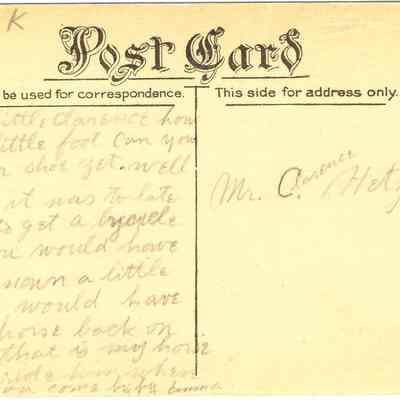 K
Post Card
be used for correspondence.
This side for address only.
ittle Clarence how
little foot Can you
r shoe yet. well
it was to late
to get a bycycle
ou would have
a little
would have
horse back on
that is my horse
ride him when
come
Mr. C.
Clarence